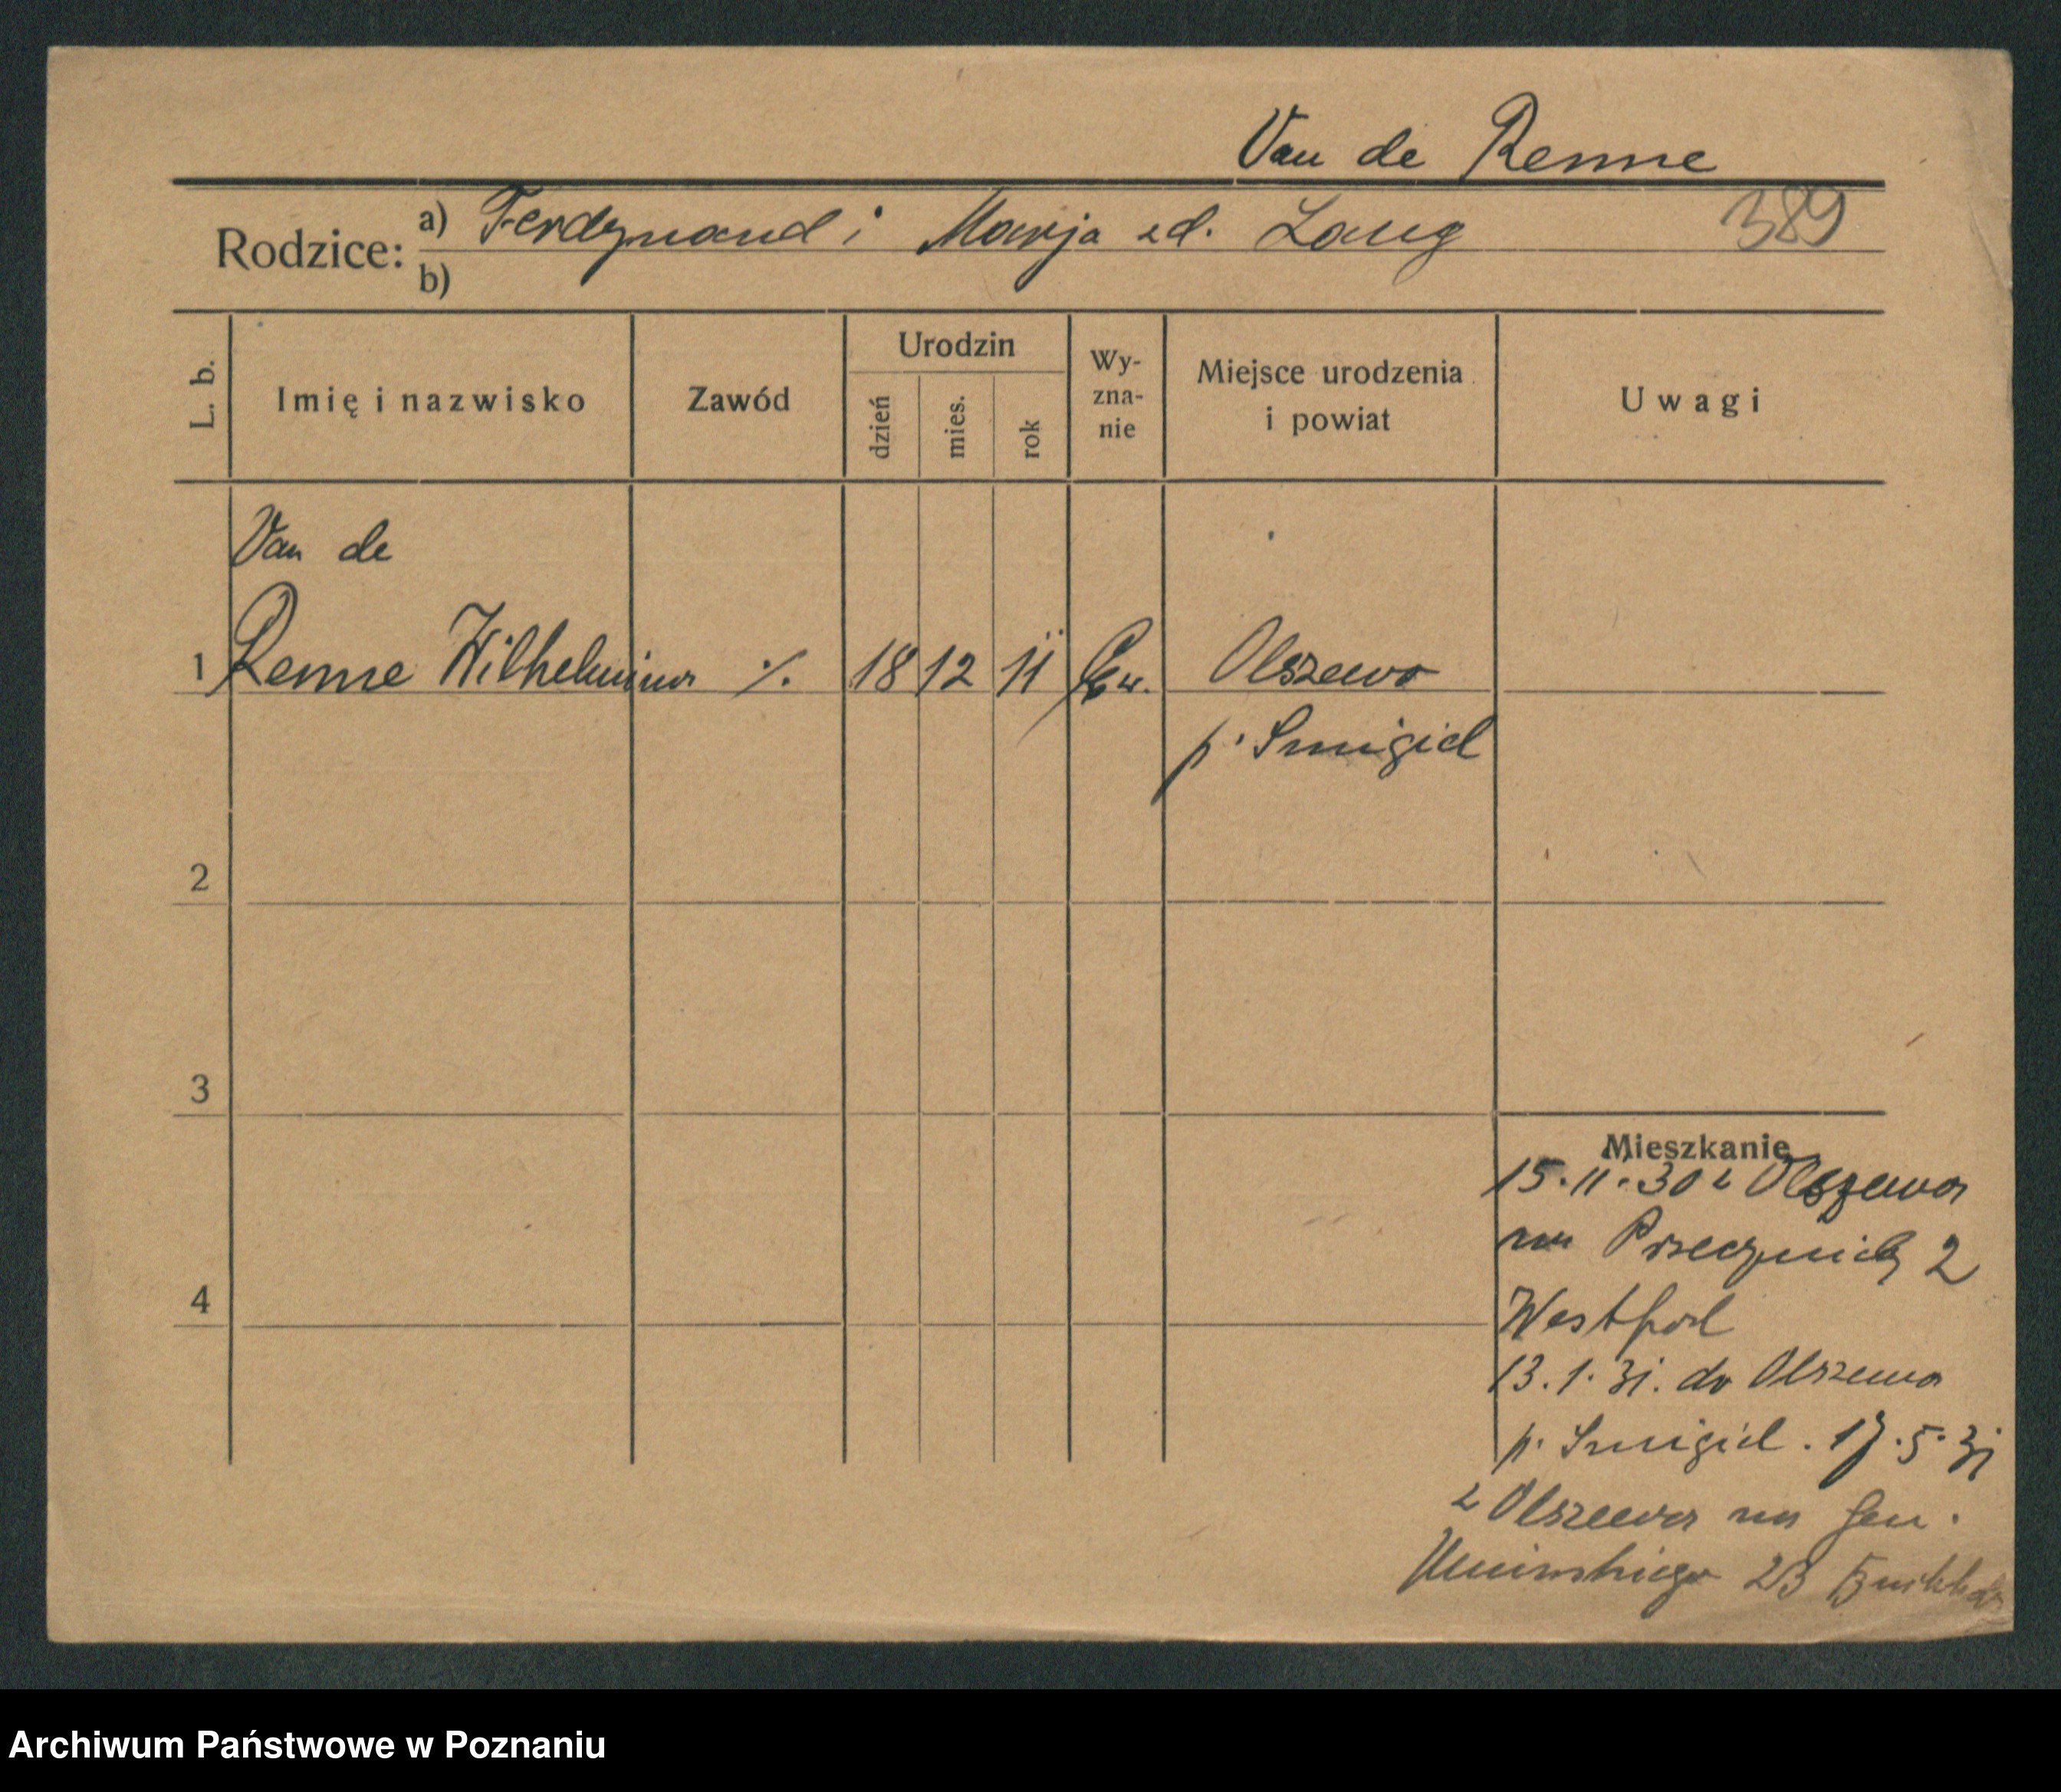 Van de Renne
389
Rodzice: a) Ferdynand i Marja zd. Lang
b)
L. b. Imię i nazwisko Zawód Urodzin dzień mies. rok Wy-zna-nie Miejsce urodzenia i powiat Uwagi
Van de
1 Renne Wilhelmina ·/. 18 12 11 Ew. Olszewo
p. Smigiel
2
3
Mieszkanie
15.11.30 z Olszewa
na 2
4
Westfal
13.1.31. do Olszewa
p. Smigiel. 17.5.31
z Olszewa na Gen.
Umińskiego 23
Archiwum Państwowe w Poznaniu